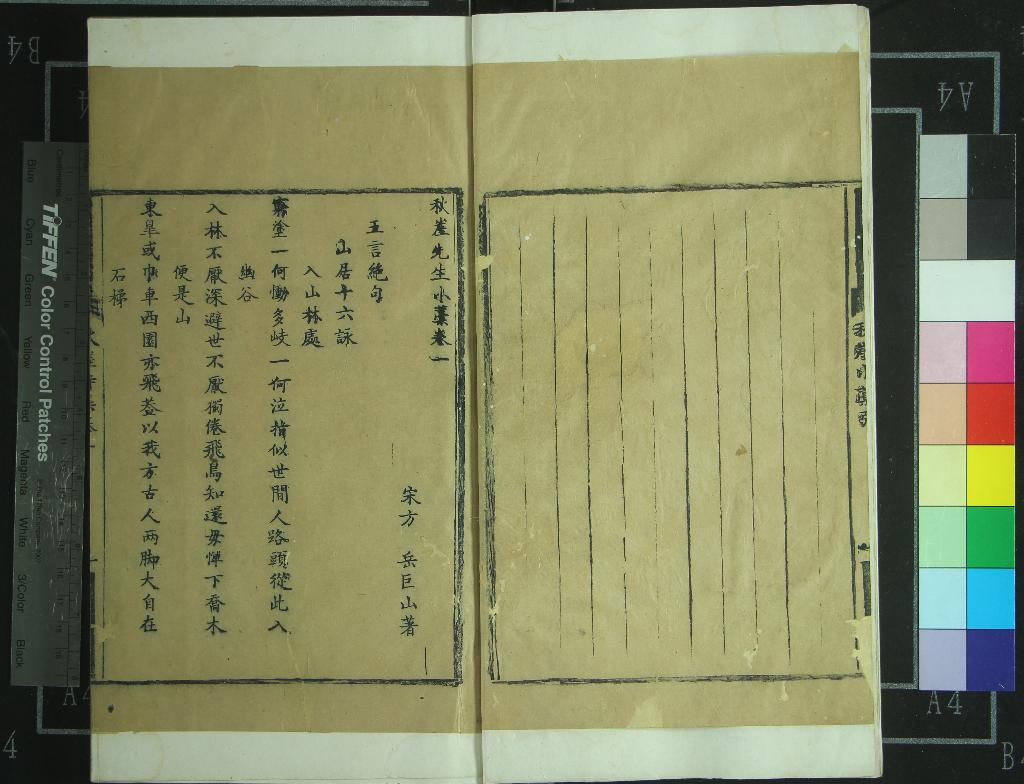 秋崖先生小藁卷一
宋方　岳巨山著
五言絶句
山居十六詠
入山林處
窮塗一何慟多岐一何泣指似世間人路頭從此入
幽谷
入林不厭深避世不厭獨倦飛鳥知還毋憚下喬木
便是山
東皐或巾車西園亦飛蓋以我方古人两脚大自在
石梯
TIFFEN Color Control Patches
Blue
Cyan
Green
Yellow
Red
Magenta
White
3/Color
Black
B4
A4
A4
A4